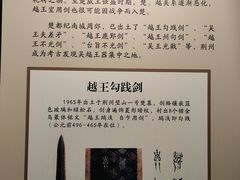 越王室用剑也很可能因战争而入楚。
楚都纪南城周郊，已出土了"越王勾践剑"、"吴
王夫差矛"、"越王鹿郢剑"、"越王州句剑"、"越
王不光剑"、"台旨不光剑"、"吴王光戟"等，荆州
成为考古发现吴越王器集中之地。
越王勾践剑
1965年出土于荆州望山一号楚墓，剑格镶嵌蓝
色玻璃和绿松石，剑身遍饰菱形暗纹，刻出8个错金
鸟篆体铭文"越王鸠浅 自乍用剑"，鸠浅即勾践
（公元前496-465年在位）。